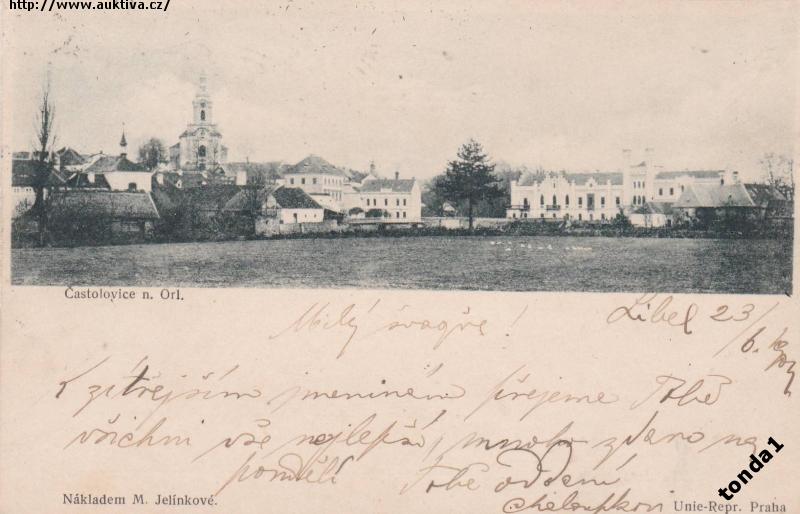 http://www.auktiva.cz/
Častolovice n. Orl.
Milý švagře!
Libel 23/6.
K zítřejším jmeninám přejeme Tobě
všichni vše nejlepší, mnoho zdaru na
pondělí Tobě oddaní
Nákladem M. Jelínkové.
Unie-Repr. Praha
tonda1